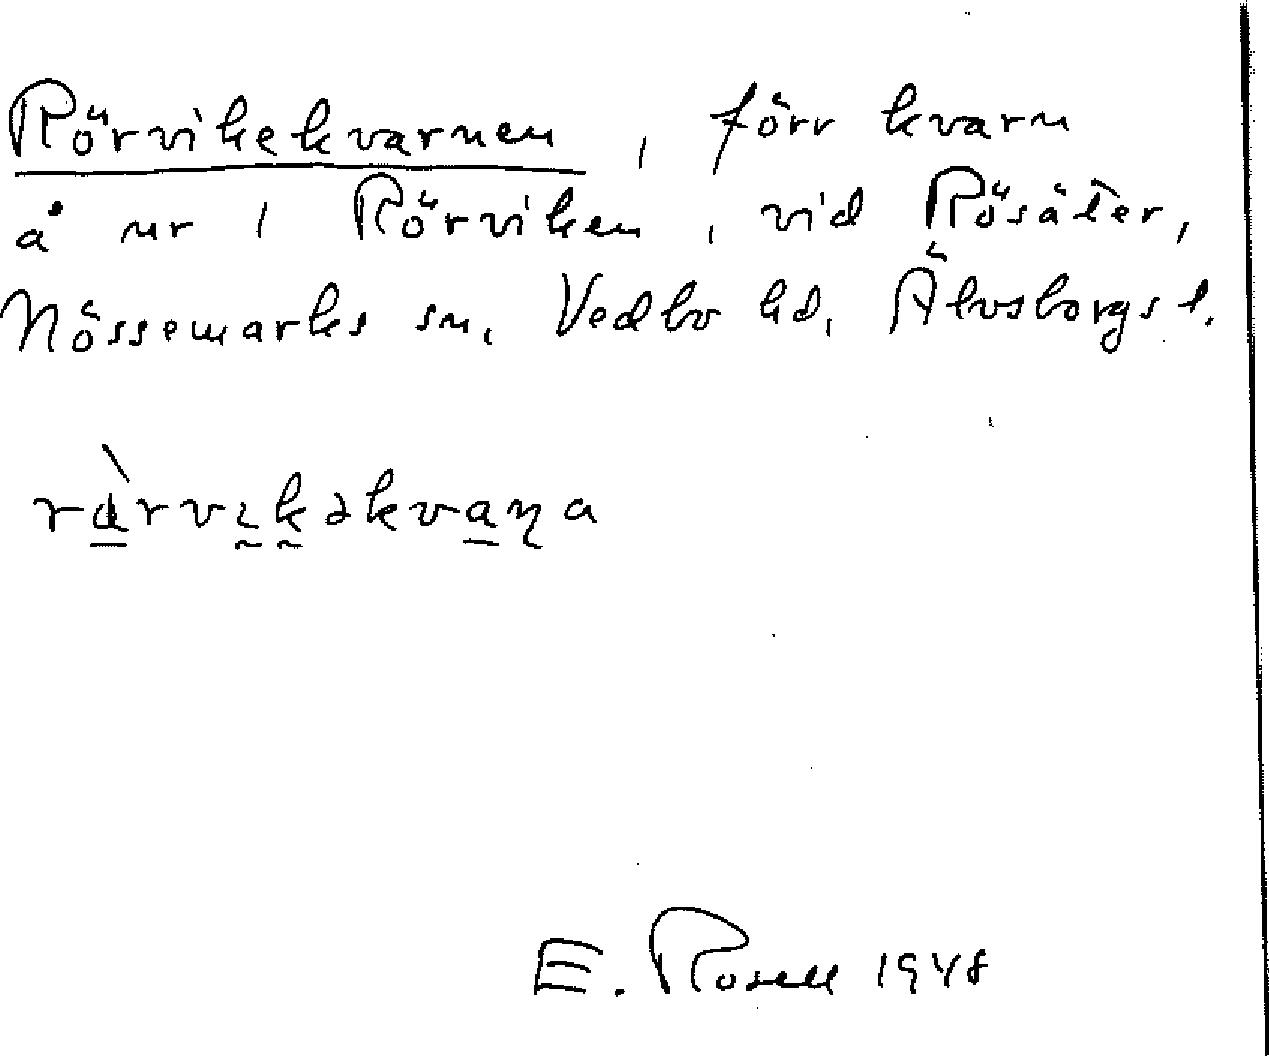 Rörvikekvarnen, förr kvarn
å nr 1 Rörviken, vid Rösäter,
Nössemarks sn, Vedbo hd, Älvsborgs l.
E. Rosell 1948